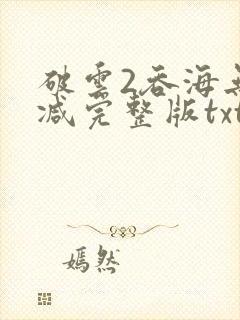 破雲2吞海
减完整版txt
嫣然